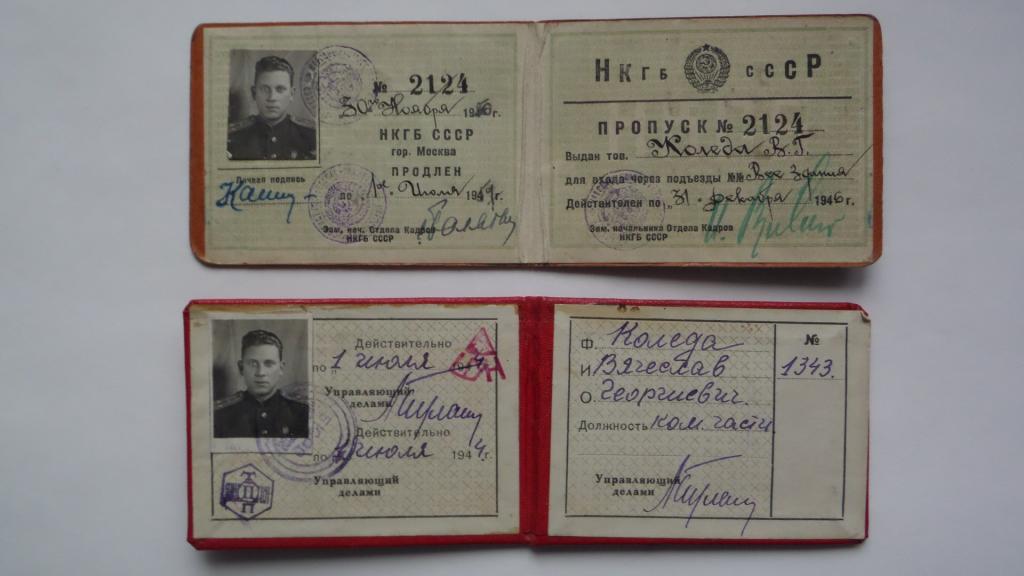 № 2124
30го Ноября 1946г.
НКГБ СССР
гор. Москва
ПРОДЛЕН
Личная подпись
по 1го Июля 194 г.
Зам. нач. Отдела Кадров
НКГБ СССР
НКГБ СССР
ПРОПУСК № 2124
Выдан тов. Коледа В.Г.
для входа через подъезды №№ Все здания
Действителен по „31 декабря 1946г.
Зам. начальника Отдела Кадров
НКГБ СССР
Действительно
по 1 июля 194
Управляющий
делами
Действительно
по июля 194 г.
Управляющий
делами
Ф. Коледа
И Вячеслав
О. Георгиевич.
Должность ком. части
Управляющий
делами
№
1343.